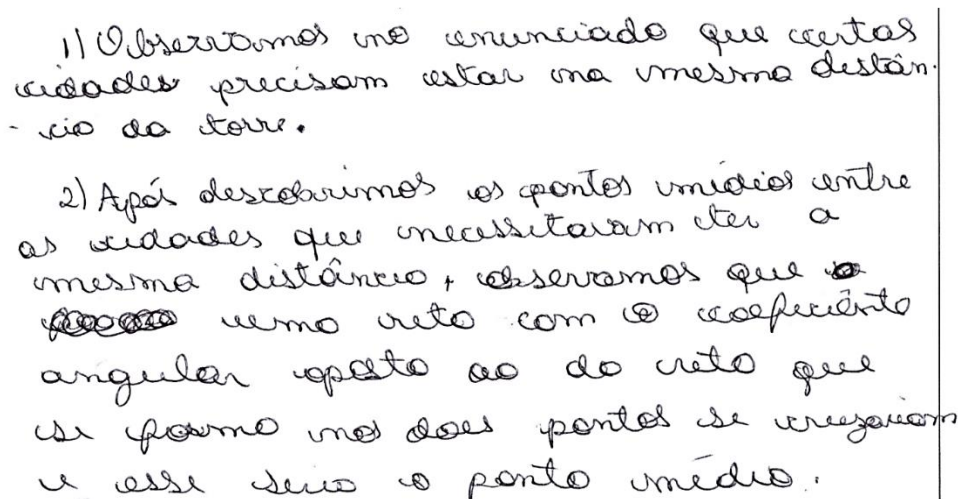 1) Observamos no enunciado que certas
cidades precisam estar na mesma distân-
- cia da torre.
2) Após descobrirmos os pontos médios entre
as cidades que necessitavam ter a
mesma distância, observamos que
uma reta com o coeficiente
angular oposto ao da reta que
se forma nos dois pontos se cruzariam
e esse seria o ponto médio.